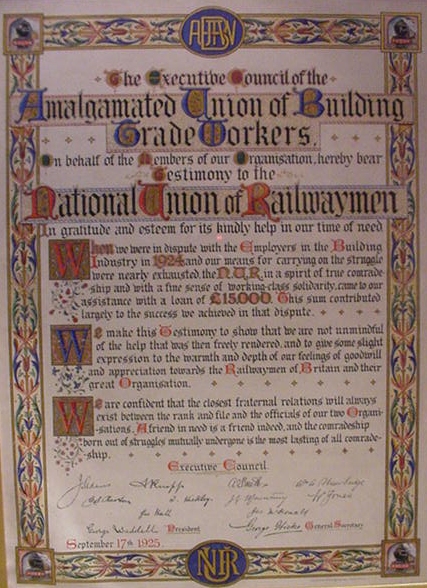 The Executive Council of the
Amalgamated Union of Building
Trade Workers.
On behalf of the Members of our Organisation, hereby bear
Testimony to the
National Union of Railwaymen
In gratitude and esteem for its kindly help in our time of need
When we were in dispute with the Employers in the Building
Industry in 1924 and our means for carrying on the struggle
were nearly exhausted, the N.U.R. in a spirit of true comrade-
ship and with a fine sense of working-class solidarity, came to our
assistance with a loan of £15000. This sum contributed
largely to the success we achieved in that dispute.
We make this Testimony to show that we are not unmindful
of the help that was then freely rendered, and to give some slight
expression to the warmth and depth of our feelings of goodwill
and appreciation towards the Railwaymen of Britain and their
great Organisation.
We are confident that the closest fraternal relations will always
exist between the rank and file and the officials of our two Organi-
sations. A friend in need is a friend indeed, and the comradeship
born out of struggles mutually undergone is the most lasting of all comrade-
ship.
Executive Council
George Waddell President George Hicks General Secretary
September 17th 1925.
NUR